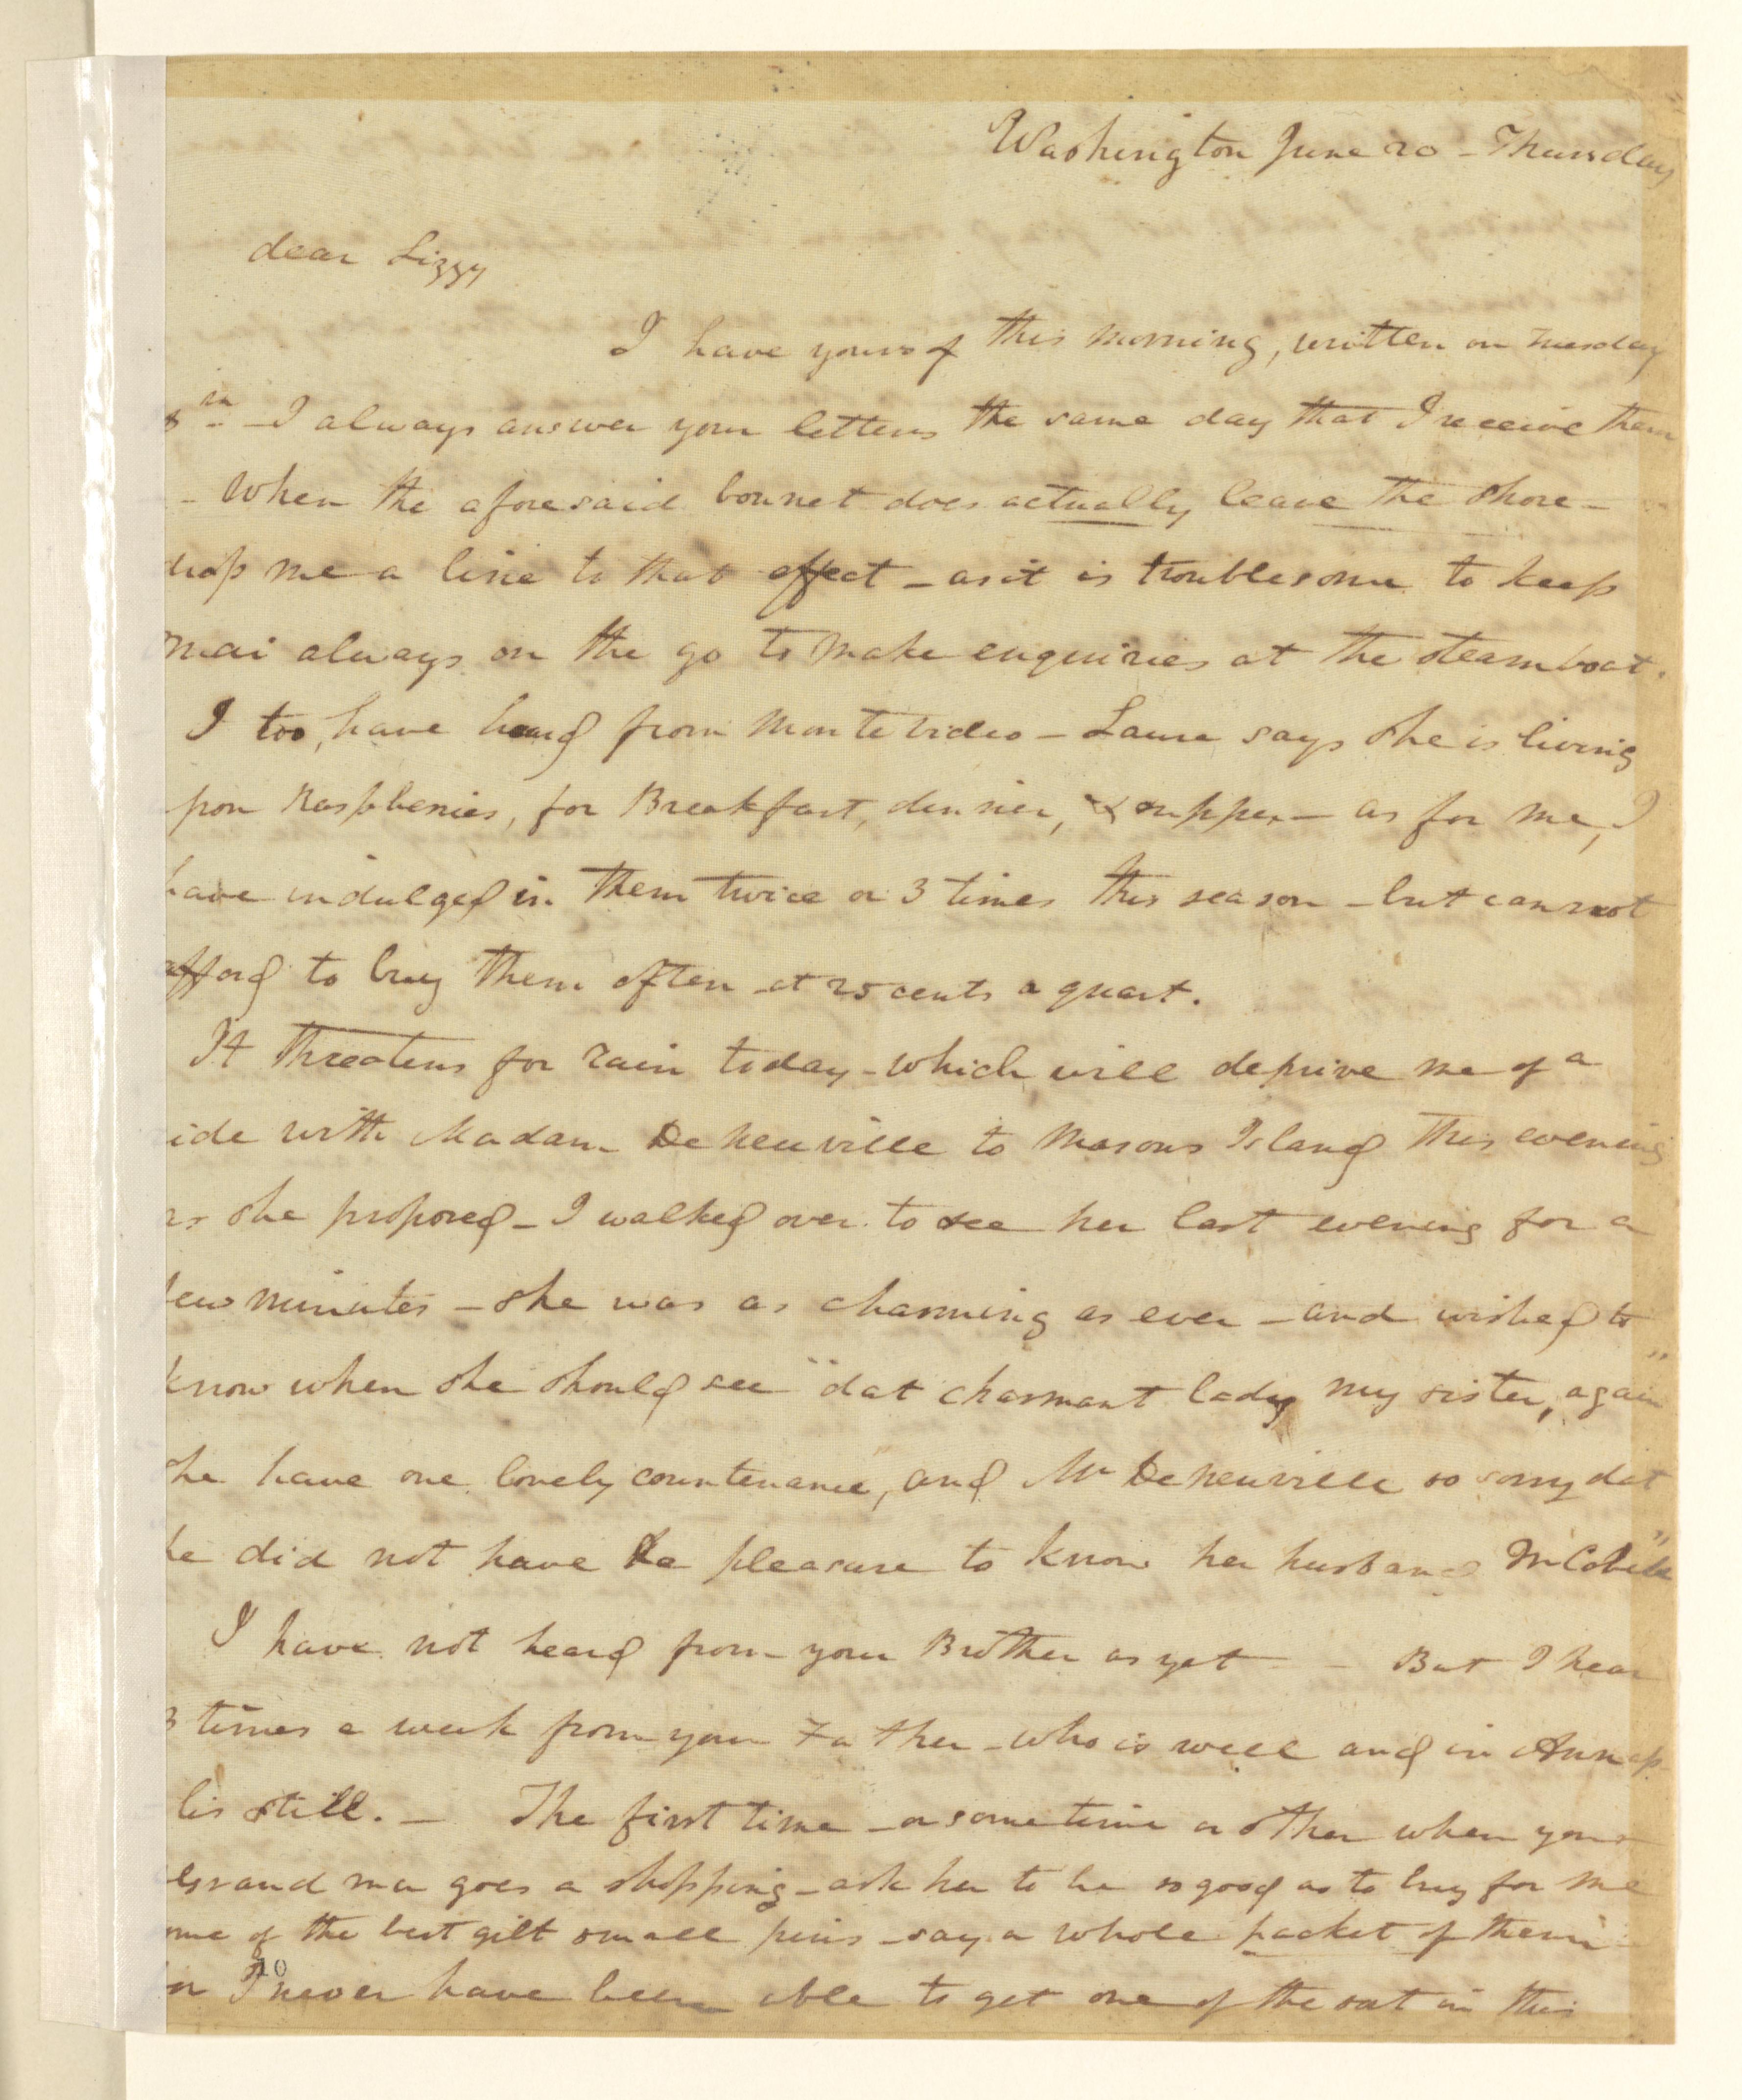 Washington June 20 - Thursday
dear Lizzy
I have yours of this morning, written on Tuesday
8th - I always answer your letters the same day that I receive them
- When the aforesaid bonnet does actually leave the shore -
drop me a line to that effect - as it is troublesome to keep
always on the go to make enquiries at the steamboat.
I too, have heard from Montevideo - Laura says she is living
pon Raspberries, for Breakfast, dinner, & supper - as for me, I
have indulged in them twice or 3 times this season - but cannot
afford to buy them often at 25 cents a quart.
It threatens for rain today - which will deprive me of a
ide with Madam De Neuville to Masons Island this evening
as she proposed - I walked over to see her last evening for a
few minutes - she was as charming as ever - and wished to
know when she should see "dat charmant lady my sister, again"
she have one lovely countenance, and Mr De Neuville so sorry dat
he did not have de pleasure to know her husband
I have not heard from your Brother as yet - - But I hear
3 times a week from your Father - who is well and in Annap
lis still. - The first time - or some time or other when your
Grand ma goes a shopping - ask her to be so good as to buy for me
ome of the best gilt small pins - say a whole packet of them
or I never have been able to get one of the sort in this
10